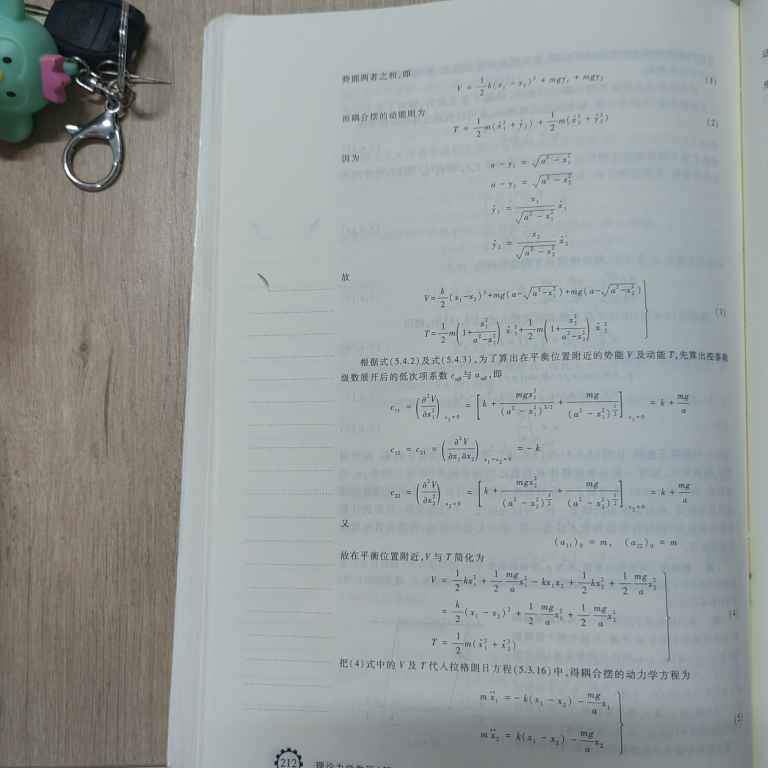 势能两者之和,即
V = \frac{1}{2}k(x_1 - x_2)^2 + mgy_1 + mgy_2 (1)
而耦合摆的动能则为
T = \frac{1}{2}m(\dot{x}_1^2 + \dot{y}_1^2) + \frac{1}{2}m(\dot{x}_2^2 + \dot{y}_2^2) (2)
因为
a - y_1 = \sqrt{a^2 - x_1^2}
a - y_2 = \sqrt{a^2 - x_2^2}
\dot{y}_1 = \frac{x_1}{\sqrt{a^2 - x_1^2}}\dot{x}_1
\dot{y}_2 = \frac{x_2}{\sqrt{a^2 - x_2^2}}\dot{x}_2
故
V = \frac{k}{2}(x_1 - x_2)^2 + mg(a - \sqrt{a^2 - x_1^2}) + mg(a - \sqrt{a^2 - x_2^2})
T = \frac{1}{2}m\left(1 + \frac{x_1^2}{a^2 - x_1^2}\right)\dot{x}_1^2 + \frac{1}{2}m\left(1 + \frac{x_2^2}{a^2 - x_2^2}\right)\dot{x}_2^2 (3)
根据式(5.4.2)及式(5.4.3),为了算出在平衡位置附近的势能 V 及动能 T,先算出按泰勒
级数展开后的低次项系数 c_{αβ} 与 a_{αβ},即
c_{11} = \left(\frac{∂^2V}{∂x_1^2}\right)_{x_1=0} = \left[k + \frac{mgx_1^2}{(a^2 - x_1^2)^{3/2}} + \frac{mg}{(a^2 - x_1^2)^{\frac{1}{2}}}\right]_{x_1=0} = k + \frac{mg}{a}
c_{12} = c_{21} = \left(\frac{∂^2V}{∂x_1∂x_2}\right)_{x_1=x_2=0} = -k
c_{22} = \left(\frac{∂^2V}{∂x_2^2}\right)_{x_2=0} = \left[k + \frac{mgx_2^2}{(a^2 - x_2^2)^{\frac{3}{2}}} + \frac{mg}{(a^2 - x_2^2)^{\frac{1}{2}}}\right]_{x_2=0} = k + \frac{mg}{a}
又
(a_{11})_0 = m, (a_{22})_0 = m
故在平衡位置附近,V 与 T 简化为
V = \frac{1}{2}kx_1^2 + \frac{1}{2}\frac{mg}{a}x_1^2 - kx_1x_2 + \frac{1}{2}kx_2^2 + \frac{1}{2}\frac{mg}{a}x_2^2
= \frac{k}{2}(x_1 - x_2)^2 + \frac{1}{2}\frac{mg}{a}x_1^2 + \frac{1}{2}\frac{mg}{a}x_2^2 (4)
T = \frac{1}{2}m(\dot{x}_1^2 + \dot{x}_2^2)
把(4)式中的 V 及 T 代入拉格朗日方程(5.3.16)中,得耦合摆的动力学方程为
m\ddot{x}_1 = -k(x_1 - x_2) - \frac{mg}{a}x_1
m\ddot{x}_2 = k(x_1 - x_2) - \frac{mg}{a}x_2 (5)
212